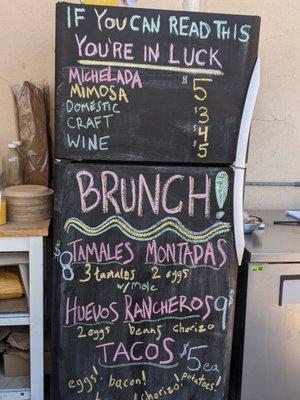 IF YOU CAN READ THIS
YOU'RE IN LUCK
MICHELADA $5
MIMOSA
DOMESTIC $3
CRAFT $4
WINE $5
BRUNCH!
TAMALES MONTADAS
$8 3 tamales 2 eggs
w/ mole
HUEVOS RANCHEROS $9
2 eggs beans chorizo
TACOS $5 ea
eggs! bacon! chorizo! potatoes!